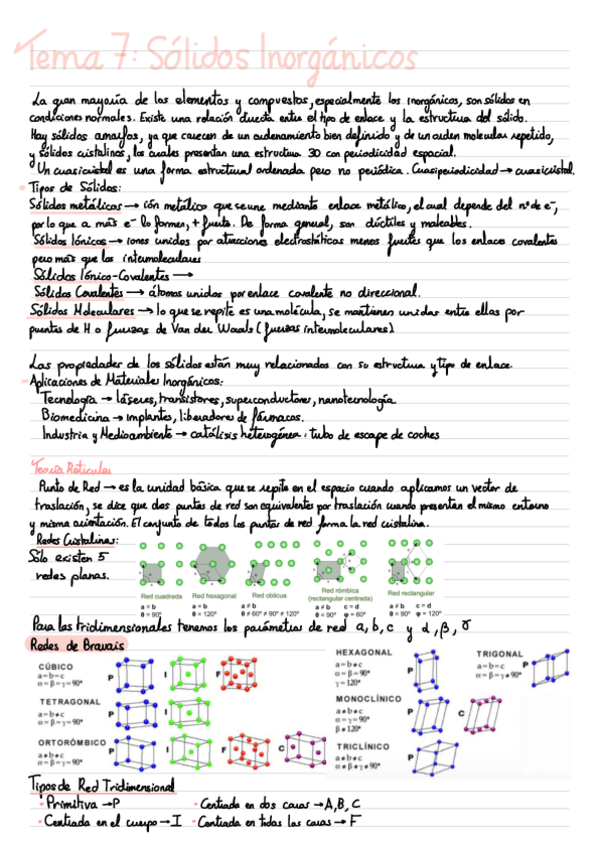 Tema 7: Sólidos Inorgánicos
La gran mayoría de los elementos y compuestos, especialmente los inorgánicos, son sólidos en
condiciones normales. Existe una relación directa entre el tipo de enlace y la estructura del sólido.
Hay sólidos amorfos, ya que carecen de un ordenamiento bien definido y de un orden molecular repetido,
y sólidos cristalinos, los cuales presentan una estructura 3D con periodicidad espacial.
Un cuasicristal es una forma estructural ordenada pero no periódica. Cuasiperiodicidad → cuasicristal.
• Tipos de Sólidos:
Sólidos metálicos → ión metálico que se une mediante enlace metálico, el cual depende del nº de e⁻,
por lo que a más e⁻ lo formen, + fuerte. De forma general, son dúctiles y maleables.
Sólidos Iónicos → iones unidos por atracciones electrostáticas menos fuertes que los enlaces covalentes
pero más que las intermoleculares
Sólidos Iónico-Covalentes →
Sólidos Covalentes → átomos unidos por enlace covalente no direccional.
Sólidos Moleculares → lo que se repite es una molécula, se mantienen unidas entre ellas por
puentes de H o fuerzas de Van der Waals (fuerzas intermoleculares)
Las propiedades de los sólidos están muy relacionados con su estructura y tipo de enlace.
- Aplicaciones de Materiales Inorgánicos:
Tecnología → láseres, transistores, superconductores, nanotecnología.
Biomedicina → implantes, liberadores de fármacos.
Industria y Medioambiente → catálisis heterogénea: tubo de escape de coches
Teoría Reticular
Punto de Red → es la unidad básica que se repite en el espacio cuando aplicamos un vector de
traslación, se dice que dos puntos de red son equivalentes por traslación cuando presentan el mismo entorno
y misma orientación. El conjunto de todos los puntos de red forma la red cristalina.
Redes Cristalinas:
Solo existen 5
redes planas.
Red cuadrada Red hexagonal Red oblicua Red rómbica Red rectangular
(rectangular centrada)
a = b a = b a ≠ b a ≠ b c = d a ≠ b
θ = 90° θ = 120° θ ≠ 60° ≠ 90° ≠ 120° θ ≠ 90° φ = 60° θ = 90°
Para las tridimensionales tenemos los parámetros de red a, b, c y α, β, γ
Redes de Bravais
CÚBICO
a=b=c
α=β=γ=90°
P I F
TETRAGONAL
a=b≠c
α=β=γ=90°
P I
ORTORÓMBICO
a≠b≠c
α=β=γ=90°
P I F C
HEXAGONAL
a=b≠c
α=β=90°
γ=120°
P
TRIGONAL
a=b=c
α=β=γ≠90°
P
MONOCLÍNICO
a≠b≠c
α=γ=90°
β≠120°
P C
TRICLÍNICO
a≠b≠c
α≠β≠γ≠90°
P
Tipos de Red Tridimensional
• Primitiva → P • Centrada en dos caras → A, B, C
• Centrada en el cuerpo → I • Centrada en todas las caras → F